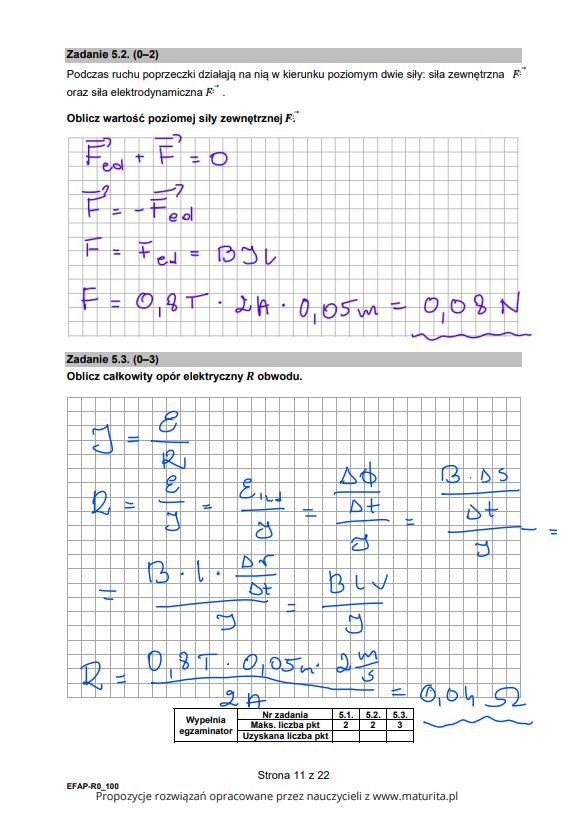 Zadanie 5.2. (0–2)
Podczas ruchu poprzeczki działają na nią w kierunku poziomym dwie siły: siła zewnętrzna F⃗
oraz siła elektrodynamiczna F⃗ .
Oblicz wartość poziomej siły zewnętrznej F⃗
F⃗ed + F⃗ = 0
F⃗ = -F⃗ed
F = Fed = BJl
F = 0,8T · 2A · 0,05m = 0,08 N
Zadanie 5.3. (0–3)
Oblicz całkowity opór elektryczny R obwodu.
J = ℰ/R
R = ℰ/J = ℰind/J = (Δϕ/Δt)/J = (B·ΔS/Δt)/J =
= (B·l·Δr/Δt)/J = Blv/J
R = (0,8T · 0,05m · 2 m/s)/2A = 0,04 Ω
Wypełnia egzaminator
Nr zadania 5.1. 5.2. 5.3.
Maks. liczba pkt 2 2 3
Uzyskana liczba pkt
Strona 11 z 22
EFAP-R0_100
Propozycje rozwiązań opracowane przez nauczycieli z www.maturita.pl